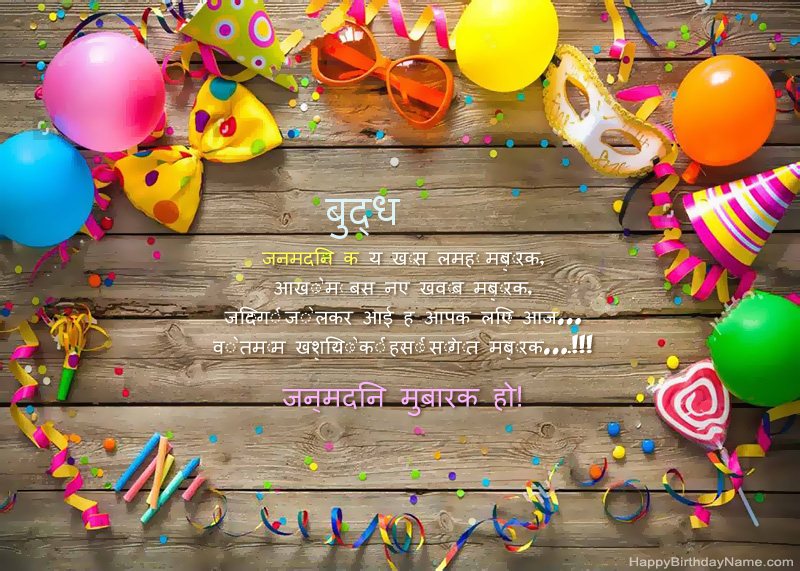 बुद्ध
जनमदिन क य खास लमह मबारक,
आखाें म बस नए खवाब मबारक,
जिंदगी जाे लेकर आई ह आपक लिए आज...
वाे तमाम खुशियाें की हसीं साैगात मबारक....!!!
जन्मदिन मुबारक हो!
HappyBirthdayName.com